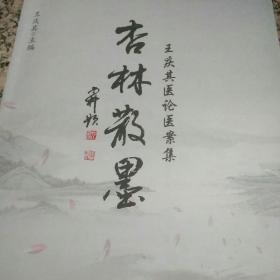 王庆其 主编
杏林散墨
王庆其医论医案集